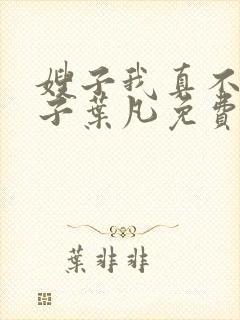 嫂子我真不
子葉凡免費
葉非非